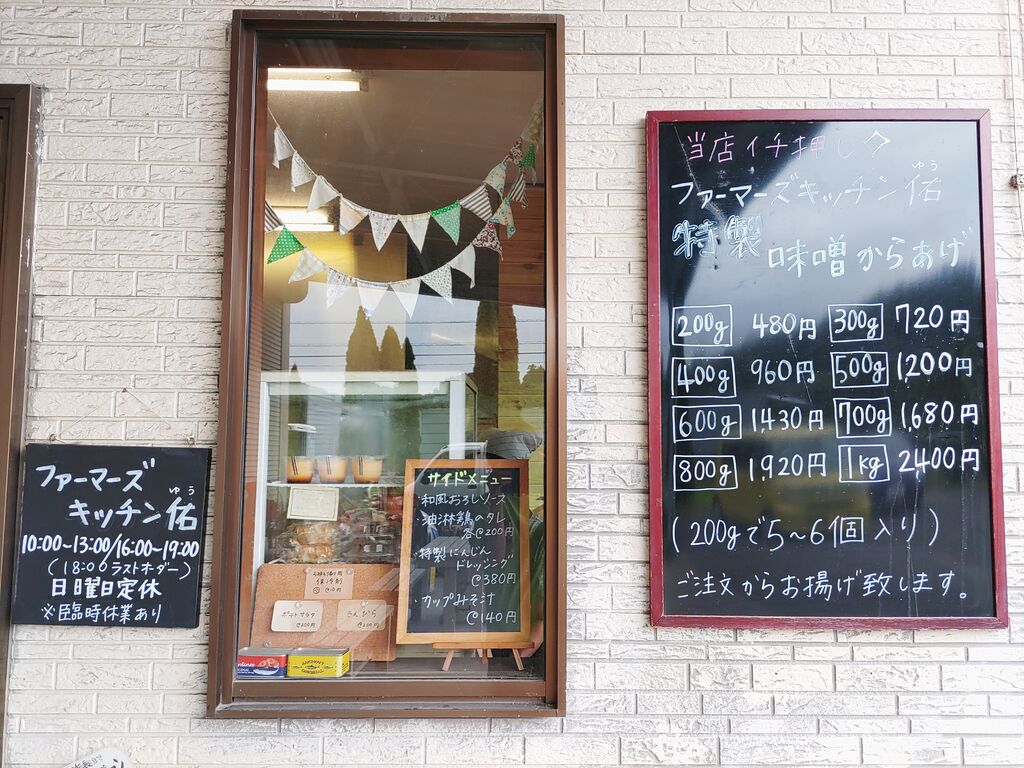 ファーマーズ
キッチン佑
ゆう
10:00~13:00/16:00~19:00
(18:00ラストオーダー)
日曜日定休
※臨時休業あり
サイドメニュー
・和風おろしソース
・油淋鶏のタレ
各@200円
・特製にんじん
ドレッシング
@380円
・カップみそ汁
@140円
ポテトサラダ
きんぴら
当店イチ押し
ファーマーズキッチン佑
ゆう
特製
味噌からあげ
200g 480円 300g 720円
400g 960円 500g 1,200円
600g 1430円 700g 1,680円
800g 1,920円 1kg 2,400円
(200gで5~6個入り)
ご注文からお揚げ致します。